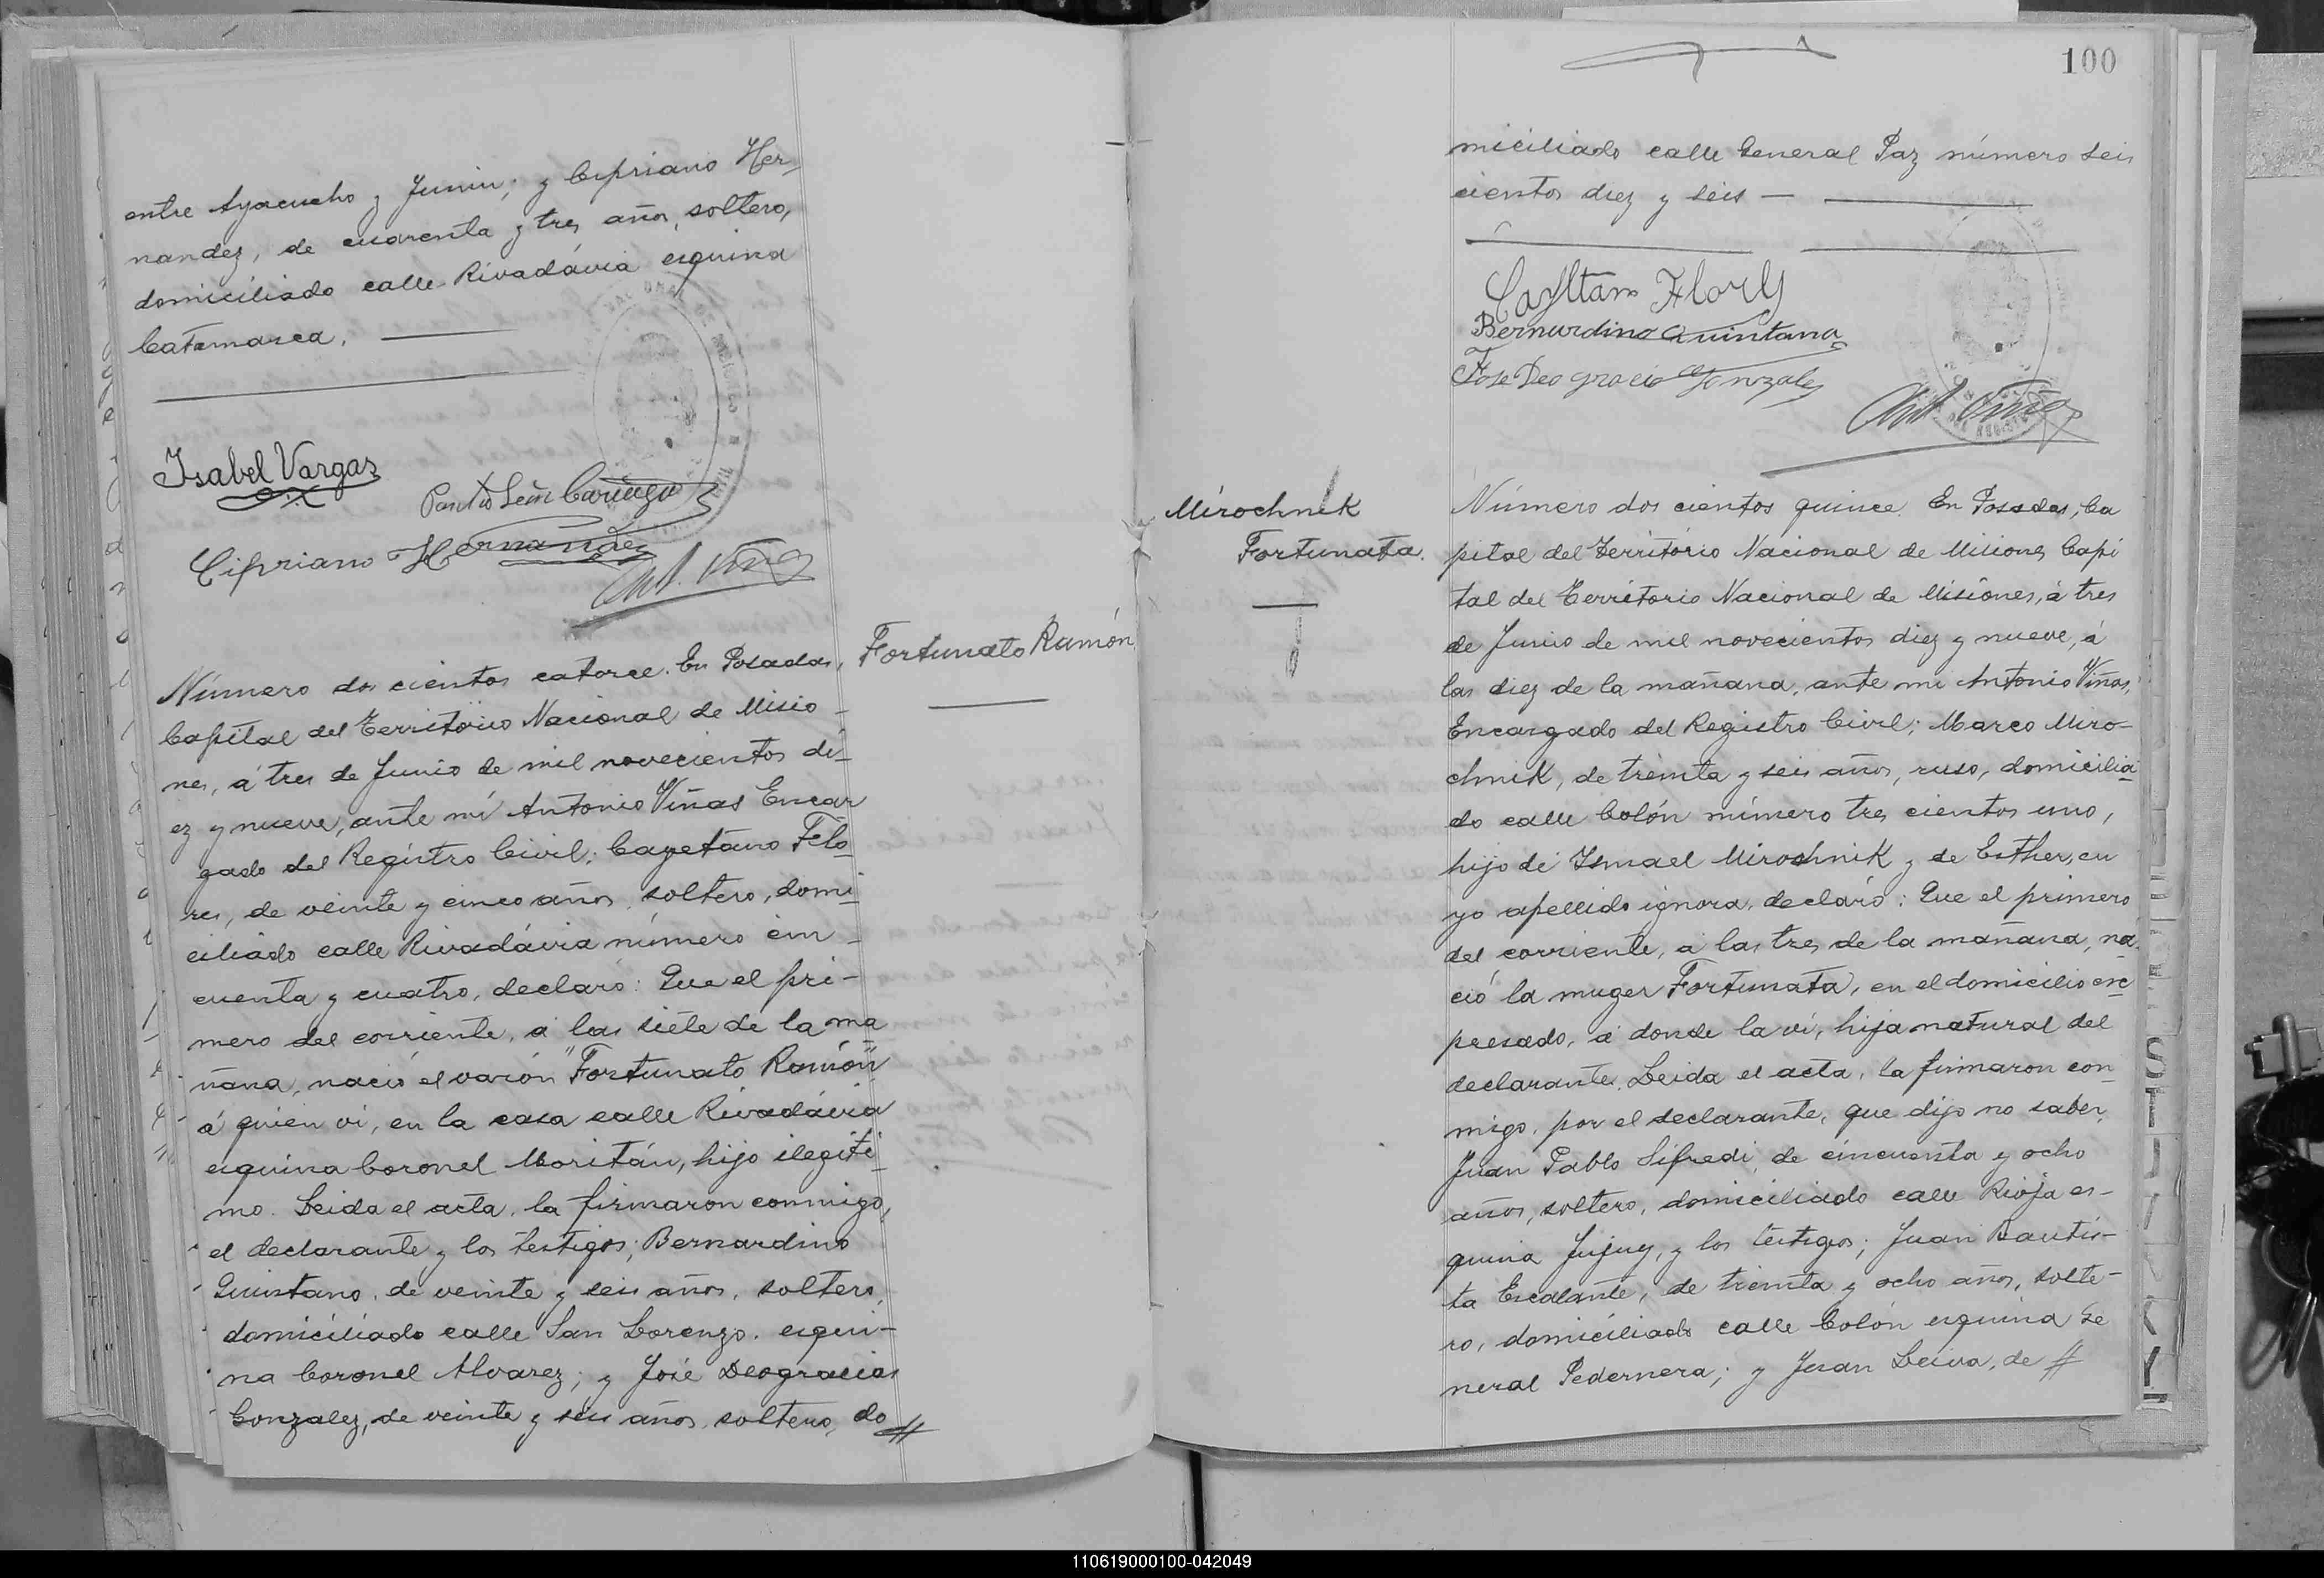 entre Ayacucho y Junin; y Cipriano Her-
nandez, de cuarenta y tres años, soltero,
domiciliado calle Rivadávia esquina
Catamarca.
Isabel Vargas
Cipriano Hernandez
Ant. Viñas
Número dos cientos catorce. En Posadas,
Capital del Territorio Nacional de Misio-
nes, á tres de Junio de mil novecientos di-
ez y nueve, ante mí Antonio Viñas Encar
gado del Registro Civil; Cayetano Flo-
res, de veinte y cinco años, soltero, domi-
ciliado calle Rivadávia número cin-
cuenta y cuatro, declaró: Que el pri-
mero del corriente, á las siete de la ma
ñana, nació el varón "Fortunato Ramón"
á quien vi, en la casa calle Rivadávia
esquina Coronel Moritán, hijo ilegiti-
mo. Leida el acta, la firmaron conmigo,
el declarante y los testigos; Bernardino
Quintano, de veinte y seis años, soltero,
domiciliado calle San Lorenzo, esqui-
na Coronel Alvarez; y José Deogracias
Gonzalez, de veinte y seis años, soltero, do #
Fortunato Ramón
100
miciliado calle General Paz número seis
cientos diez y seis —
Bernardino Quintana
Jose Deo gracia Gonzales
Ant. Viñas
Mirochnik
Fortunata.
Número dos cientos quince. En Posadas, Ca
pital del Territorio Nacional de Misiones Capi
tal del Territorio Nacional de Misiones, á tres
de Junio de mil novecientos diez y nueve, á
las diez de la mañana, ante mi Antonio Viñas,
Encargado del Registro Civil; Marco Miro-
chnik, de treinta y seis años, ruso, domicilia-
do calle Colón número tres cientos uno,
hijo de Ismael Mirochnik y de Esther, cu
yo apellido ignora, declaró: Que el primero
del corriente, á las tres de la mañana, na-
ció la muger Fortunata, en el domicilio ex-
presado, á donde la vi, hija natural del
declarante. Leida el acta, la firmaron con-
migo, por el declarante, que dijo no saber,
Juan Pablo Sifredi, de cincuenta y ocho
años, soltero, domiciliado calle Rioja es-
quina Jujuy, y los testigos; Juan Bautis-
ta Escalante, de treinta y ocho años, solte-
ro, domiciliado calle Colón esquina Ge
neral Pedernera; y Juan Leiva, de #
110619000100-042049